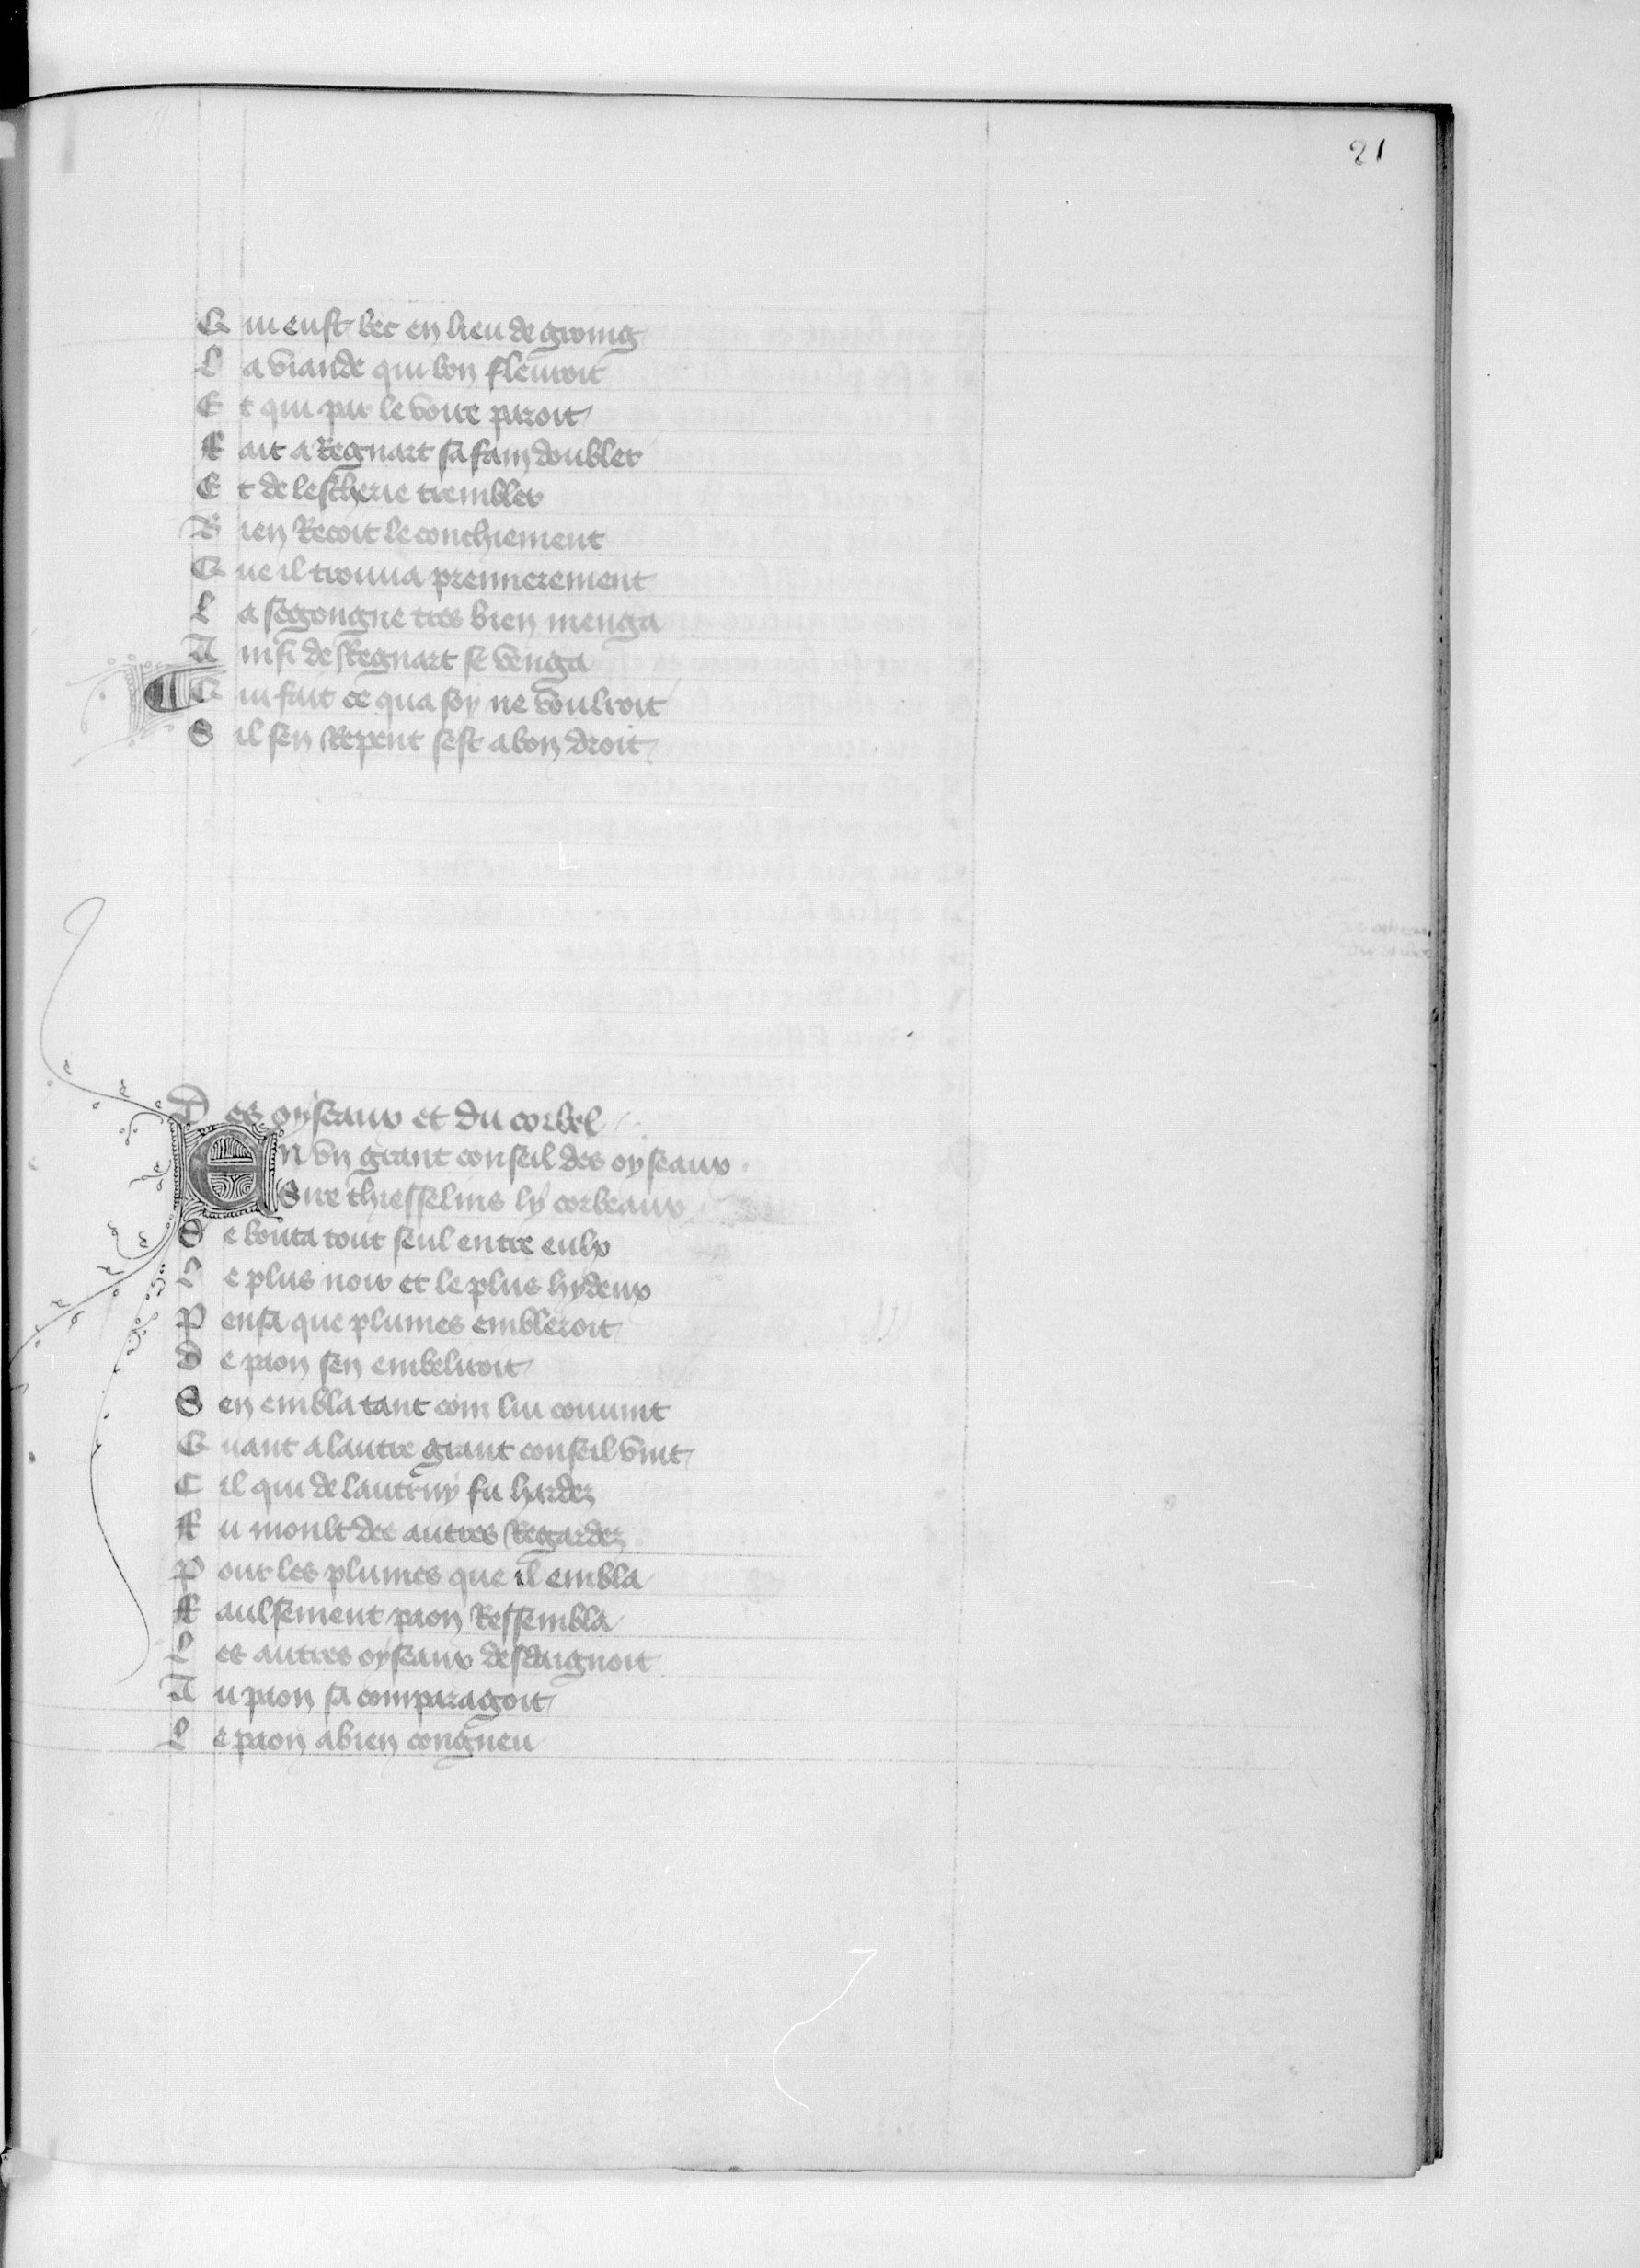 21
Qui eust bec en lieu de groing
La viande qui bon fleuroit
Et qui par le voire paroit
Fait a Regnart sa fain doubler
Et de lescherie trembler
Bien Recoit le conchiement
Que il trouua premierement
La segongne tres bien menga
Ainsi de Regnart se venga
Qui fait ce qua soy ne vouldroit
Sil sen Repent sest a bon droit
Des oyseaux et du corbel
En vn grant conseil des oyseaux
Sire thiesselins ly corbeaux
Se bouta tout seul entre eulx
Le plus noir et le plus hydeux
Pensa que plumes embleroit
De paon sen embeliroit
Sen embla tant com lui conuint
Quant a lautre grant conseil vint
Cil qui de lautruy fu hardez
Fu moult des autres Regardez
Pour les plumes que il embla
Faulsement paon Ressembla
Les autres oyseaux desdaignoit
Au paon sa comparagoit
Le paon a bien congneu